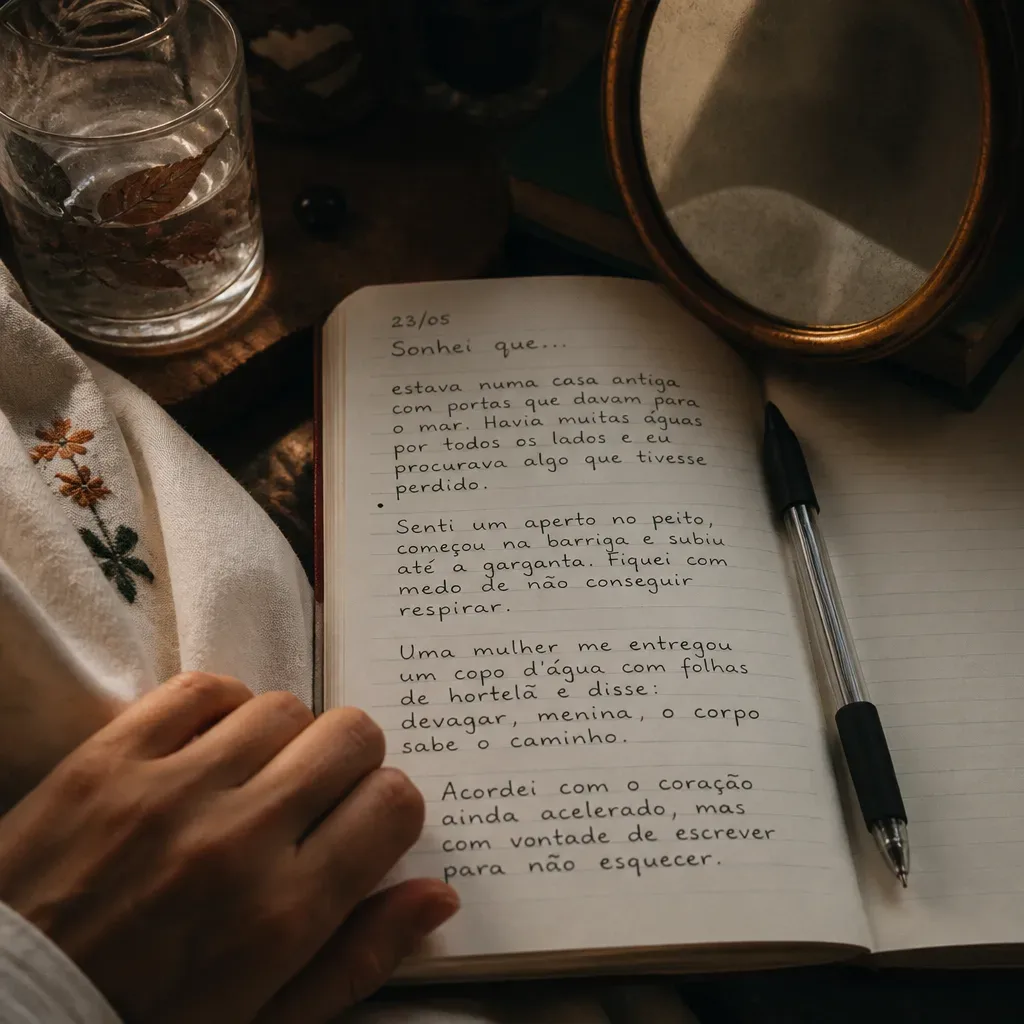 23/05
Sonhei que...
estava numa casa antiga
com portas que davam para
o mar. Havia muitas águas
por todos os lados e eu
procurava algo que tivesse
perdido.
Senti um aperto no peito,
começou na barriga e subiu
até a garganta. Fiquei com
medo de não conseguir
respirar.
Uma mulher me entregou
um copo d'água com folhas
de hortelã e disse:
devagar, menina, o corpo
sabe o caminho.
Acordei com o coração
ainda acelerado, mas
com vontade de escrever
para não esquecer.